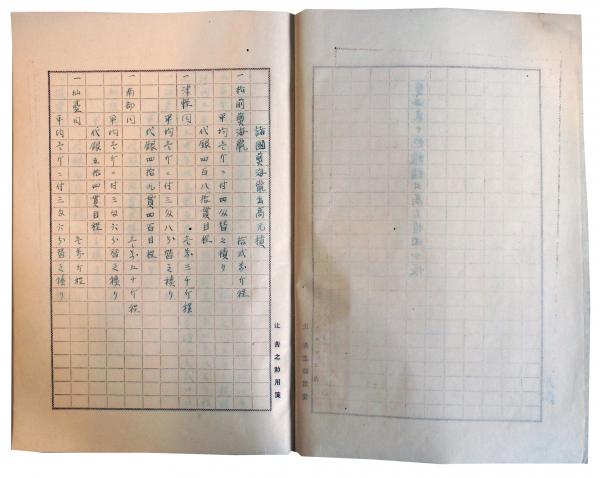 諸國煎海鼠出高凡積
一松前煎海鼠　拾弐万斤程
平均壱斤ニ付四匁替之積り
代銀四百八拾貫目程
一津軽同　壱万三千斤程
平均壱斤ニ付三匁八分替之積り
代銀四拾九貫四百目程
一南部同　壱万五千斤程
平均壱斤ニ付三匁六分替之積り
代銀五拾四貫目程
一仙臺同　壱万斤程
平均壱斤ニ付三匁六分替之積り
辻善之助用箋